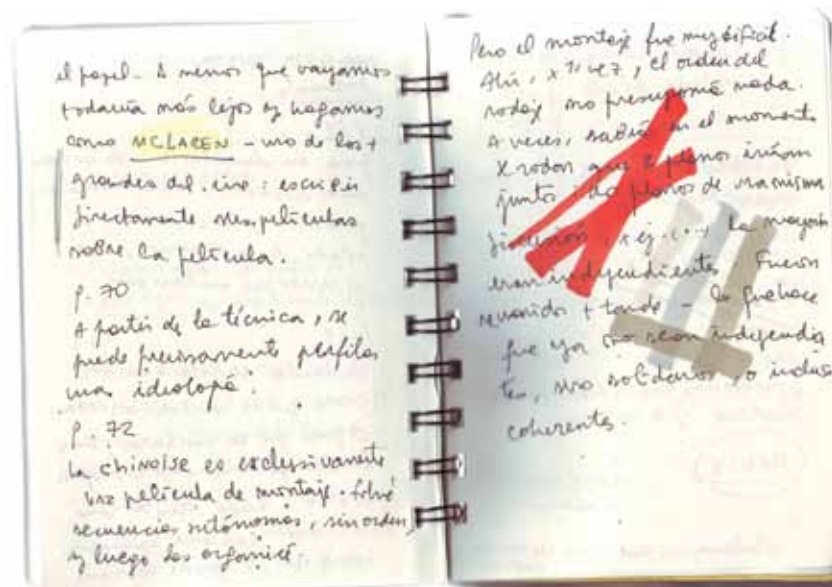 el papel - A menos que vayamos
todavía más lejos y hagamos
como MCLAREN - uno de los +
grandes del cine: escribir
directamente películas
sobre la película.
p. 70
A partir de la técnica, se
puede precisamente perfilar
una ideología.
p. 72
La chinoise es exclusivamente
una película de montaje. Rodé
secuencias autónomas, sin orden,
y luego las organicé
Pero el montaje fue muy difícil.
Ahí, x 1ª vez, el orden del
rodaje no presuponía nada.
A veces, sabía en el momento
x rodar que 2 planos irían
juntos: dos planos de una misma
x ej. (...) La mayoría
eran independientes. Fueron
reunidos + tarde - lo que hace
que ya no sean independien
tes, sino solidarios, o incluso
coherentes.